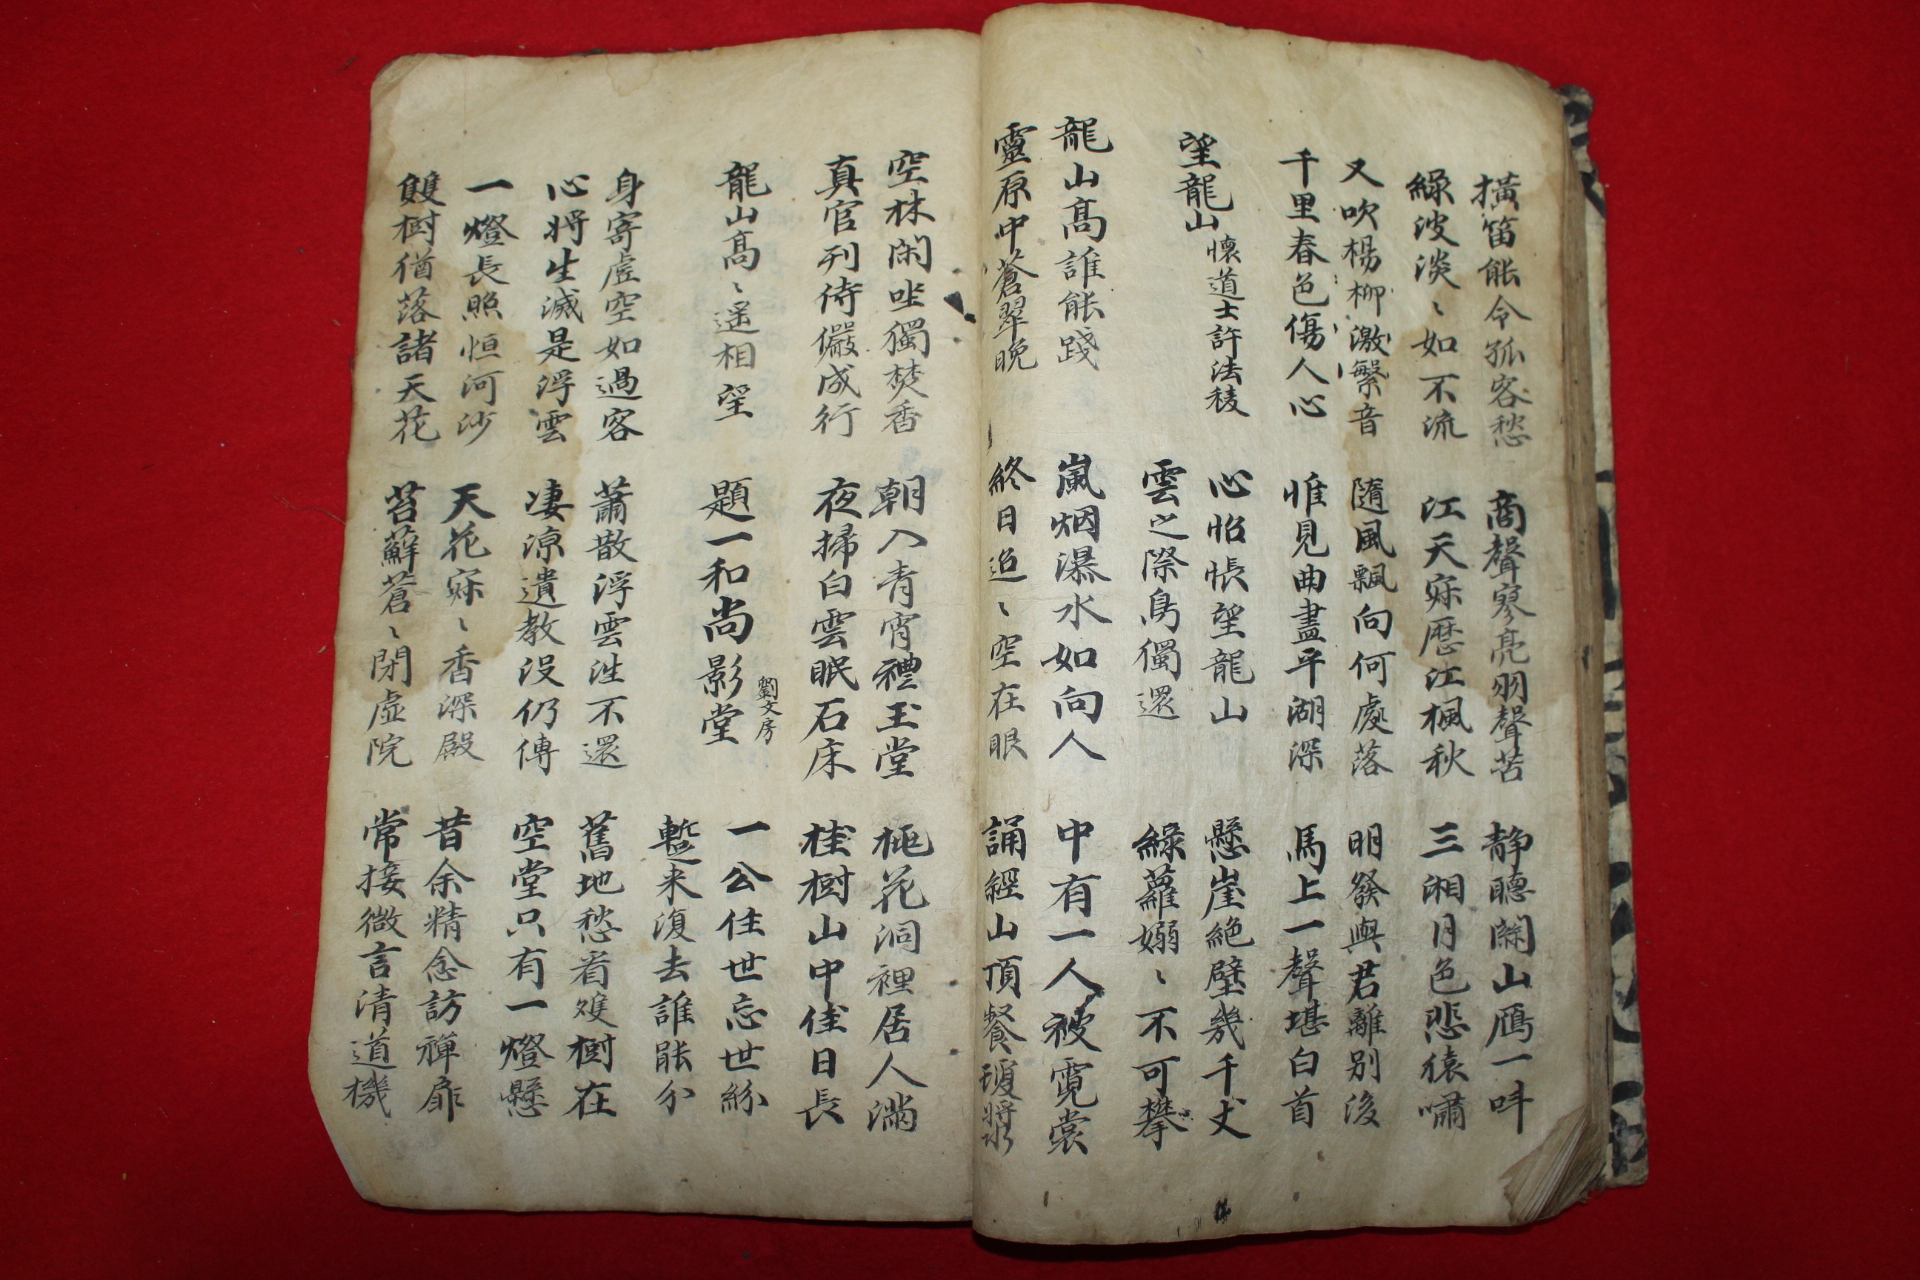 橫笛能令孤客愁
綠波淡〻如不流
商聲寥亮羽聲苦
江天寂歷江楓秋
靜聽関山鴈一叫
三湘月色悲猿嘯
又吹楊柳激繁音
千里春色傷人心
隨風飄向何處落
惟見曲盡平湖深
明發與君離別後
馬上一聲堪白首
望龍山 懷道士許法稜
心怊悵望龍山
雲之際鳥獨還
懸崖絕壁幾千丈
綠蘿嫋〻不可攀
龍山高誰能踐
靈原中蒼翠晚
嵐烟瀑水如向人
終日迢〻空在眼
中有一人被霓裳
誦經山頂餐瓊漿
空林閑坐獨焚香
真官列侍儼成行
朝入青霄禮玉堂
夜掃白雲眠石床
桃花洞裡居人滿
桂樹山中住日長
龍山高〻遥相望
題一和尚影堂 劉文房
一公住世忘世紛
暫来復去誰能分
身寄虛空如過客
心將生滅是浮雲
蕭散浮雲往不還
凄凉遺教沒仍傳
舊地愁看雙樹在
空堂只有一燈懸
一燈長照恒河沙
雙樹猶落諸天花
天花寂〻香深殿
苔蘚蒼〻閉虛院
昔余精念訪禪扉
常接微言清道機